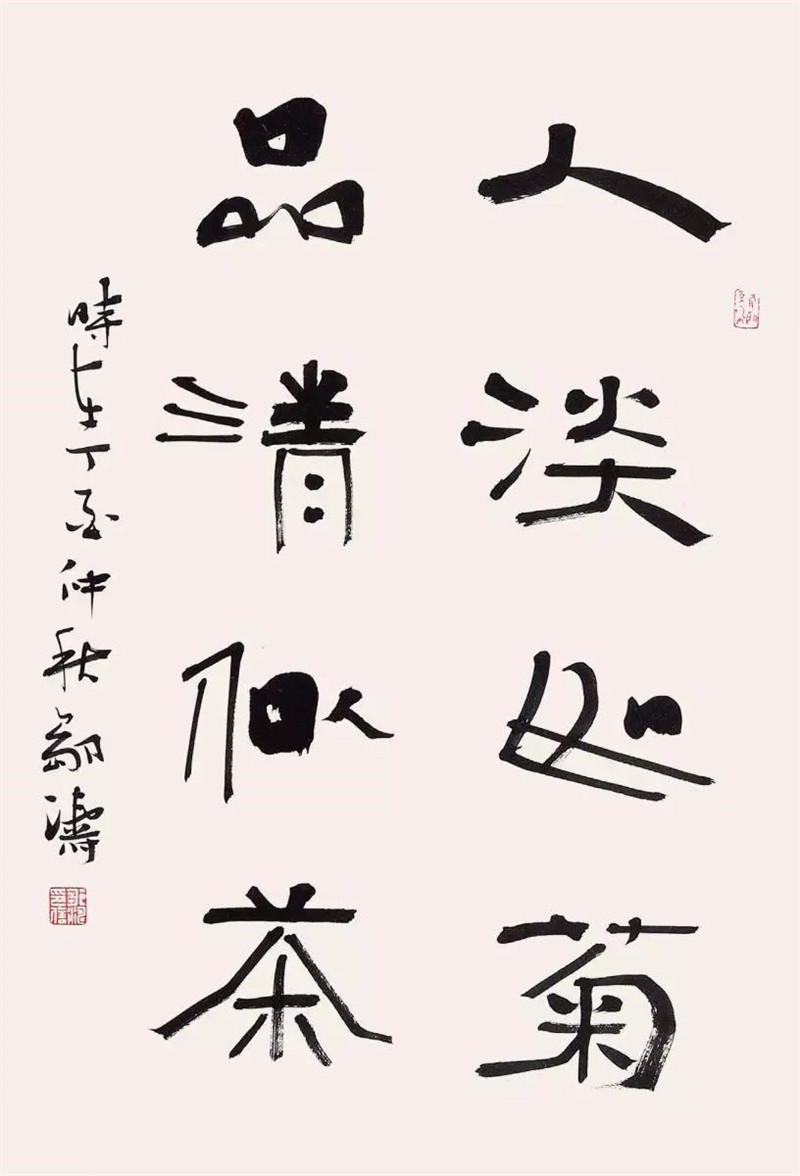 人淡如菊
品清似茶
時在丁酉仲秋鄒濤